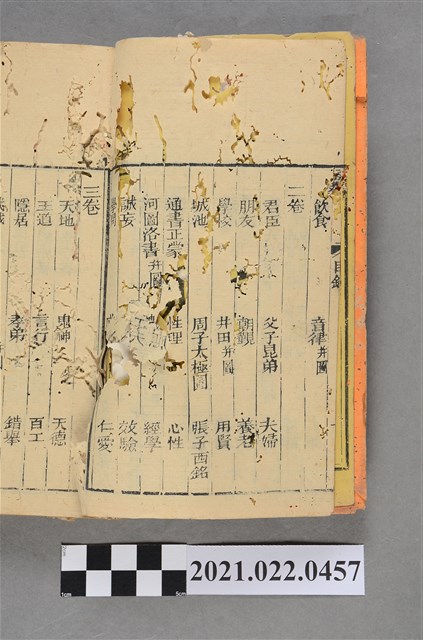 目錄
飲食 音律并圖
二卷
君臣 父子昆弟 夫婦
朋友 朝覲 養老
學校 井田并圖 用賢
城池 周子太極圖 張子西銘
通書正蒙 性理 心性
河圖洛書并圖 經學
誠妄 效驗
仁愛
三卷
天地 鬼神 天德
王道 言行 百工
隱居 孝弟 錯舉
2021.022.0457
1cm 5cm